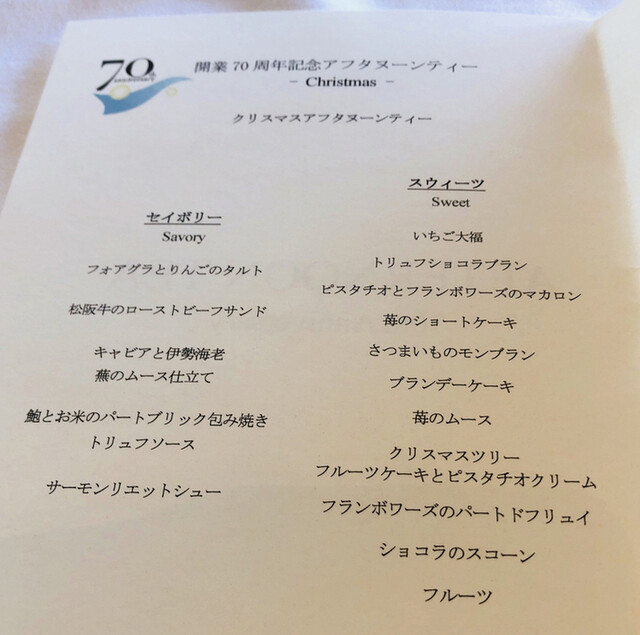 70th
ANNIVERSARY
開業 70 周年記念アフタヌーンティー
- Christmas -
クリスマスアフタヌーンティー
セイボリー
Savory
フォアグラとりんごのタルト
松阪牛のローストビーフサンド
キャビアと伊勢海老
蕪のムース仕立て
鮑とお米のパートブリック包み焼き
トリュフソース
サーモンリエットシュー
スウィーツ
Sweet
いちご大福
トリュフショコラブラン
ピスタチオとフランボワーズのマカロン
苺のショートケーキ
さつまいものモンブラン
ブランデーケーキ
苺のムース
クリスマスツリー
フルーツケーキとピスタチオクリーム
フランボワーズのパートドフリュイ
ショコラのスコーン
フルーツ